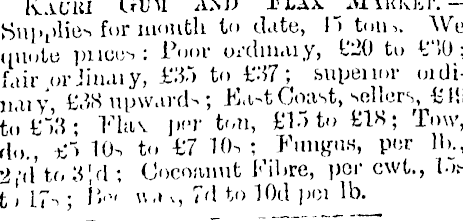 KAURI GUM AND FLAX MARKET.—
Supplies for month to date, 15 tons. We
quote prices: Poor ordinary, £20 to £30;
fair ordinary, £35 to £37; superior ordi-
nary, £38 upwards; East Coast, sellers, £49
to £53; Flax per ton, £15 to £18; Tow,
do., £5 10s to £7 10s; Fungus, per lb.,
to 3½d; Cocoanut Fibre, per cwt., 15s
to 17s; Bees wax, 7d to 10d per lb.